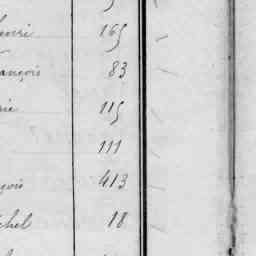 enri 165
ançois 83
rie 115
111
çois 413
chel 18